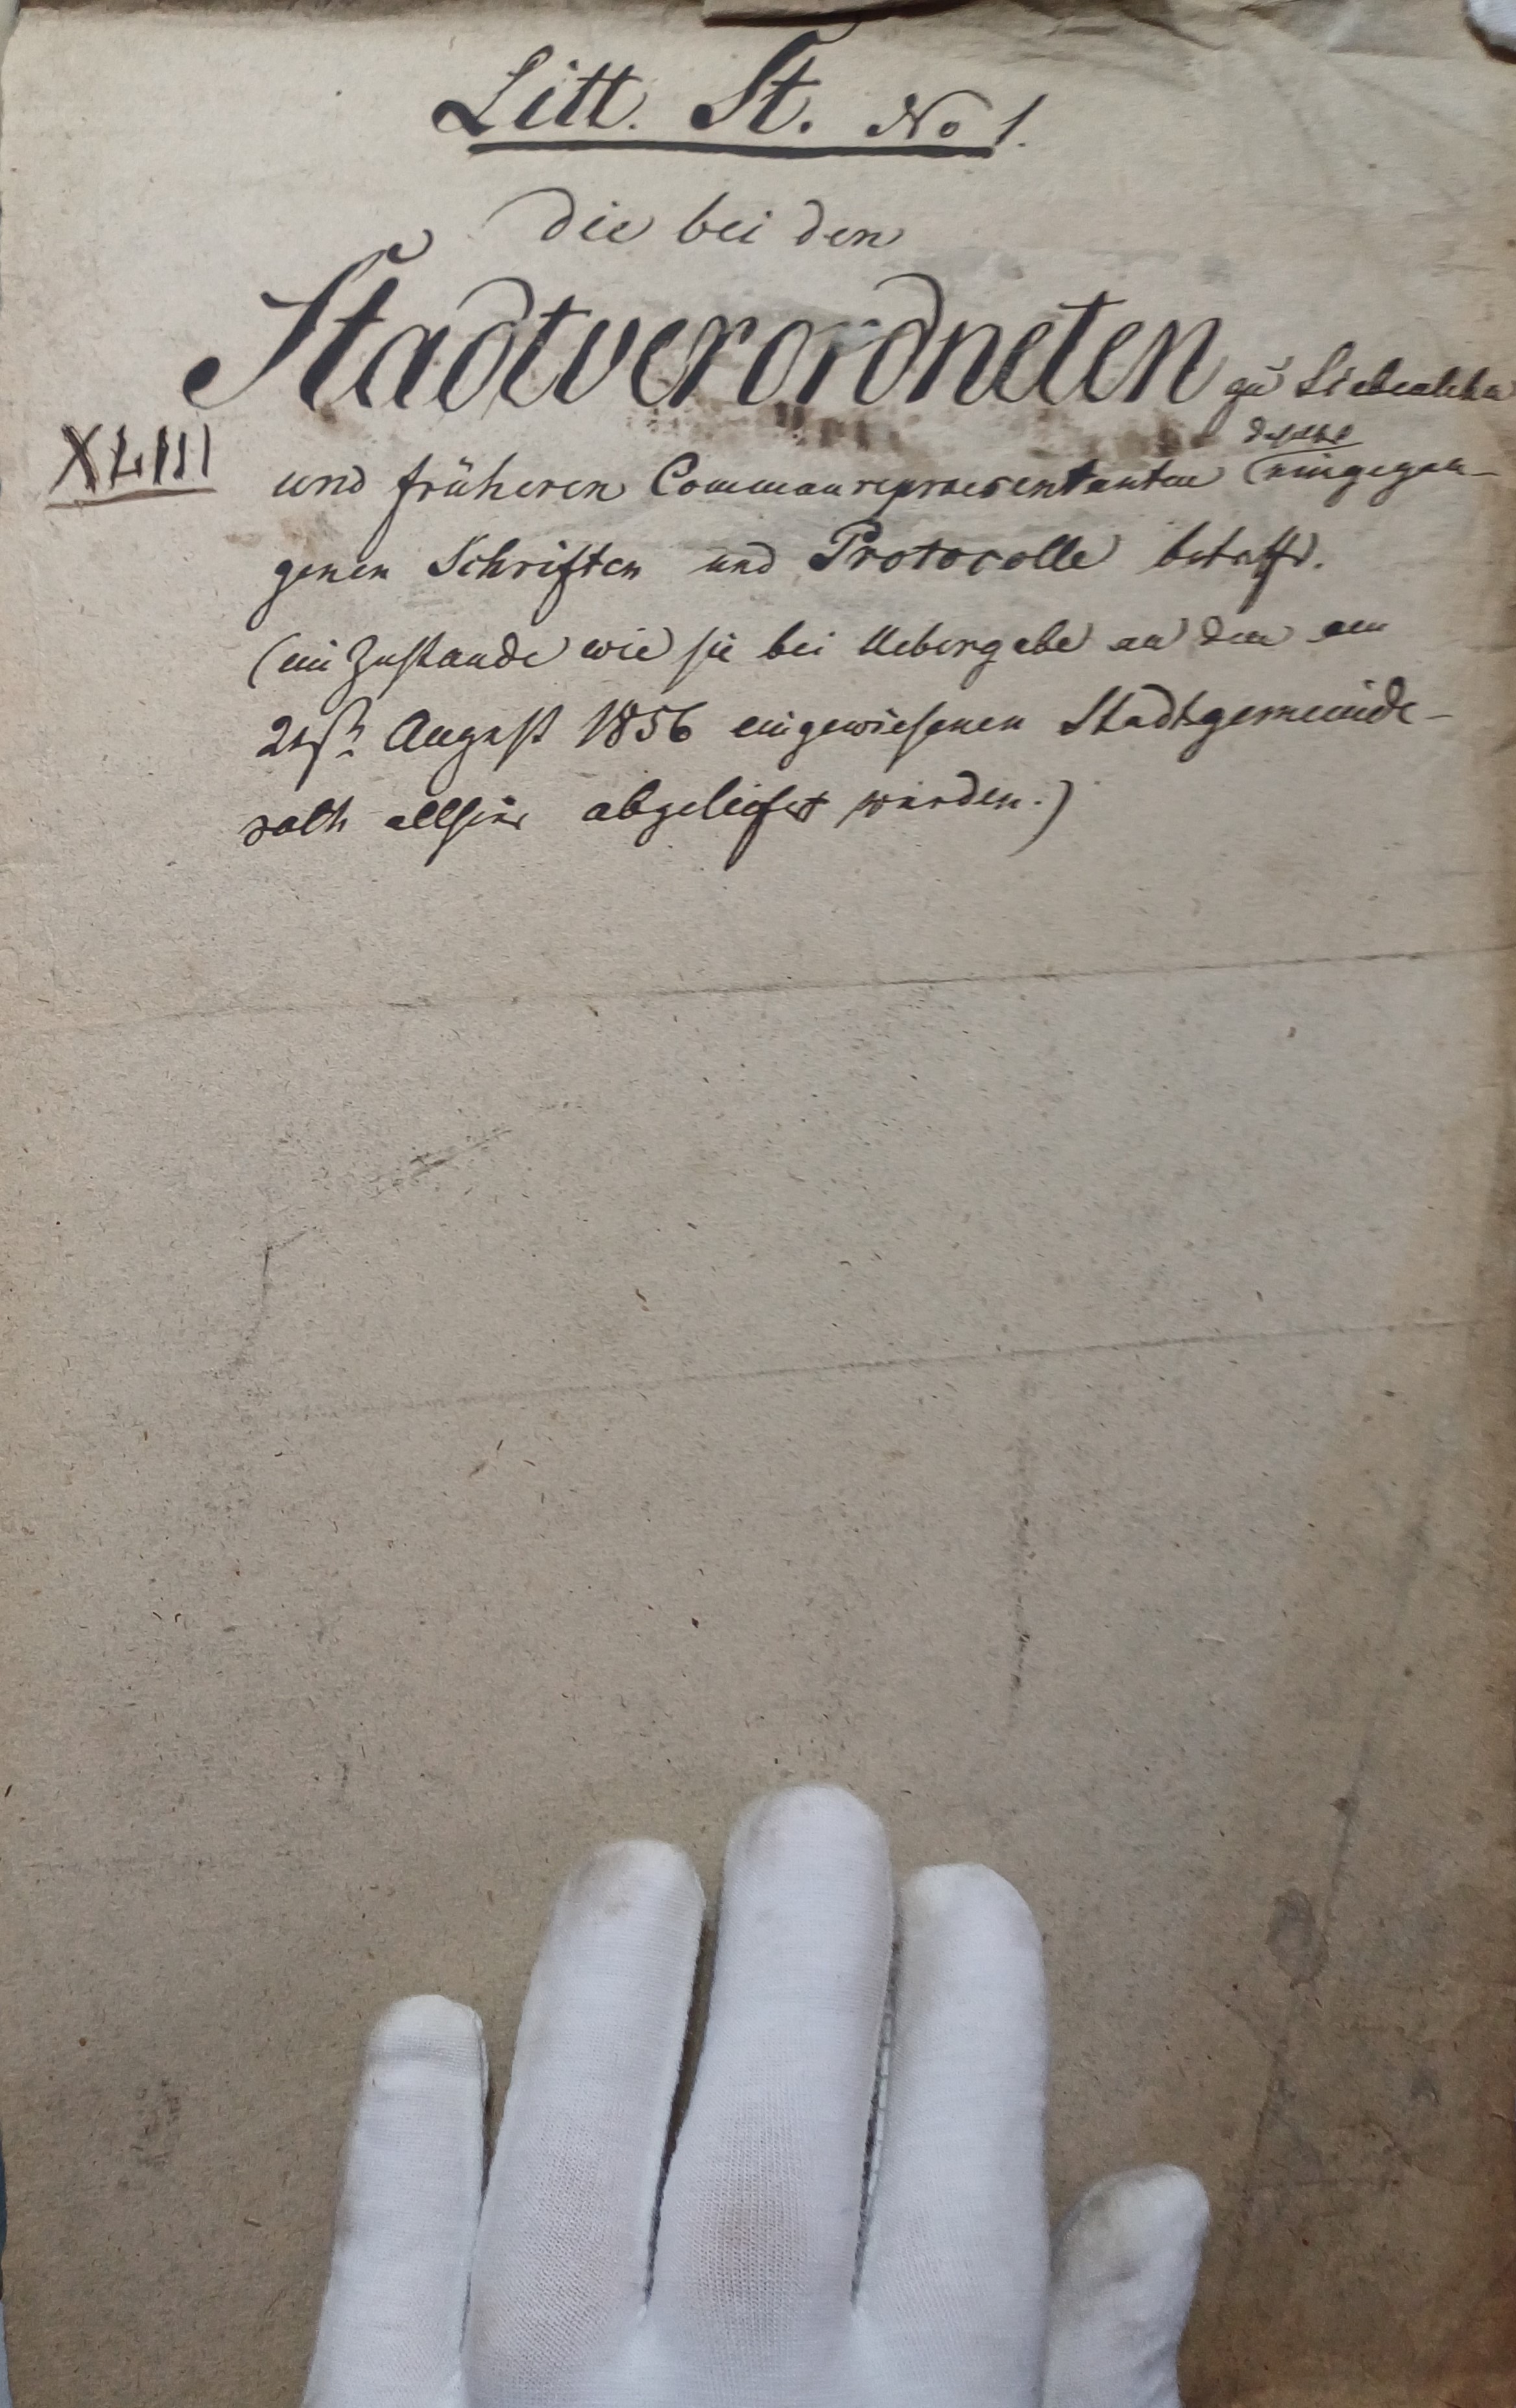 Litt. St. No 1.
die bei den
Stadtverordneten zu Siebenlehn
daselbst
XLIII
und früheren Communrepraesentanten eingegan-
genen Schriften und Protocolle betrffd.
(im Zustande wie sie bei Uebergabe an den am
August 1856 eingewiesenen Stadtgemeinde-
rath allhier abgeliefert wurden.)